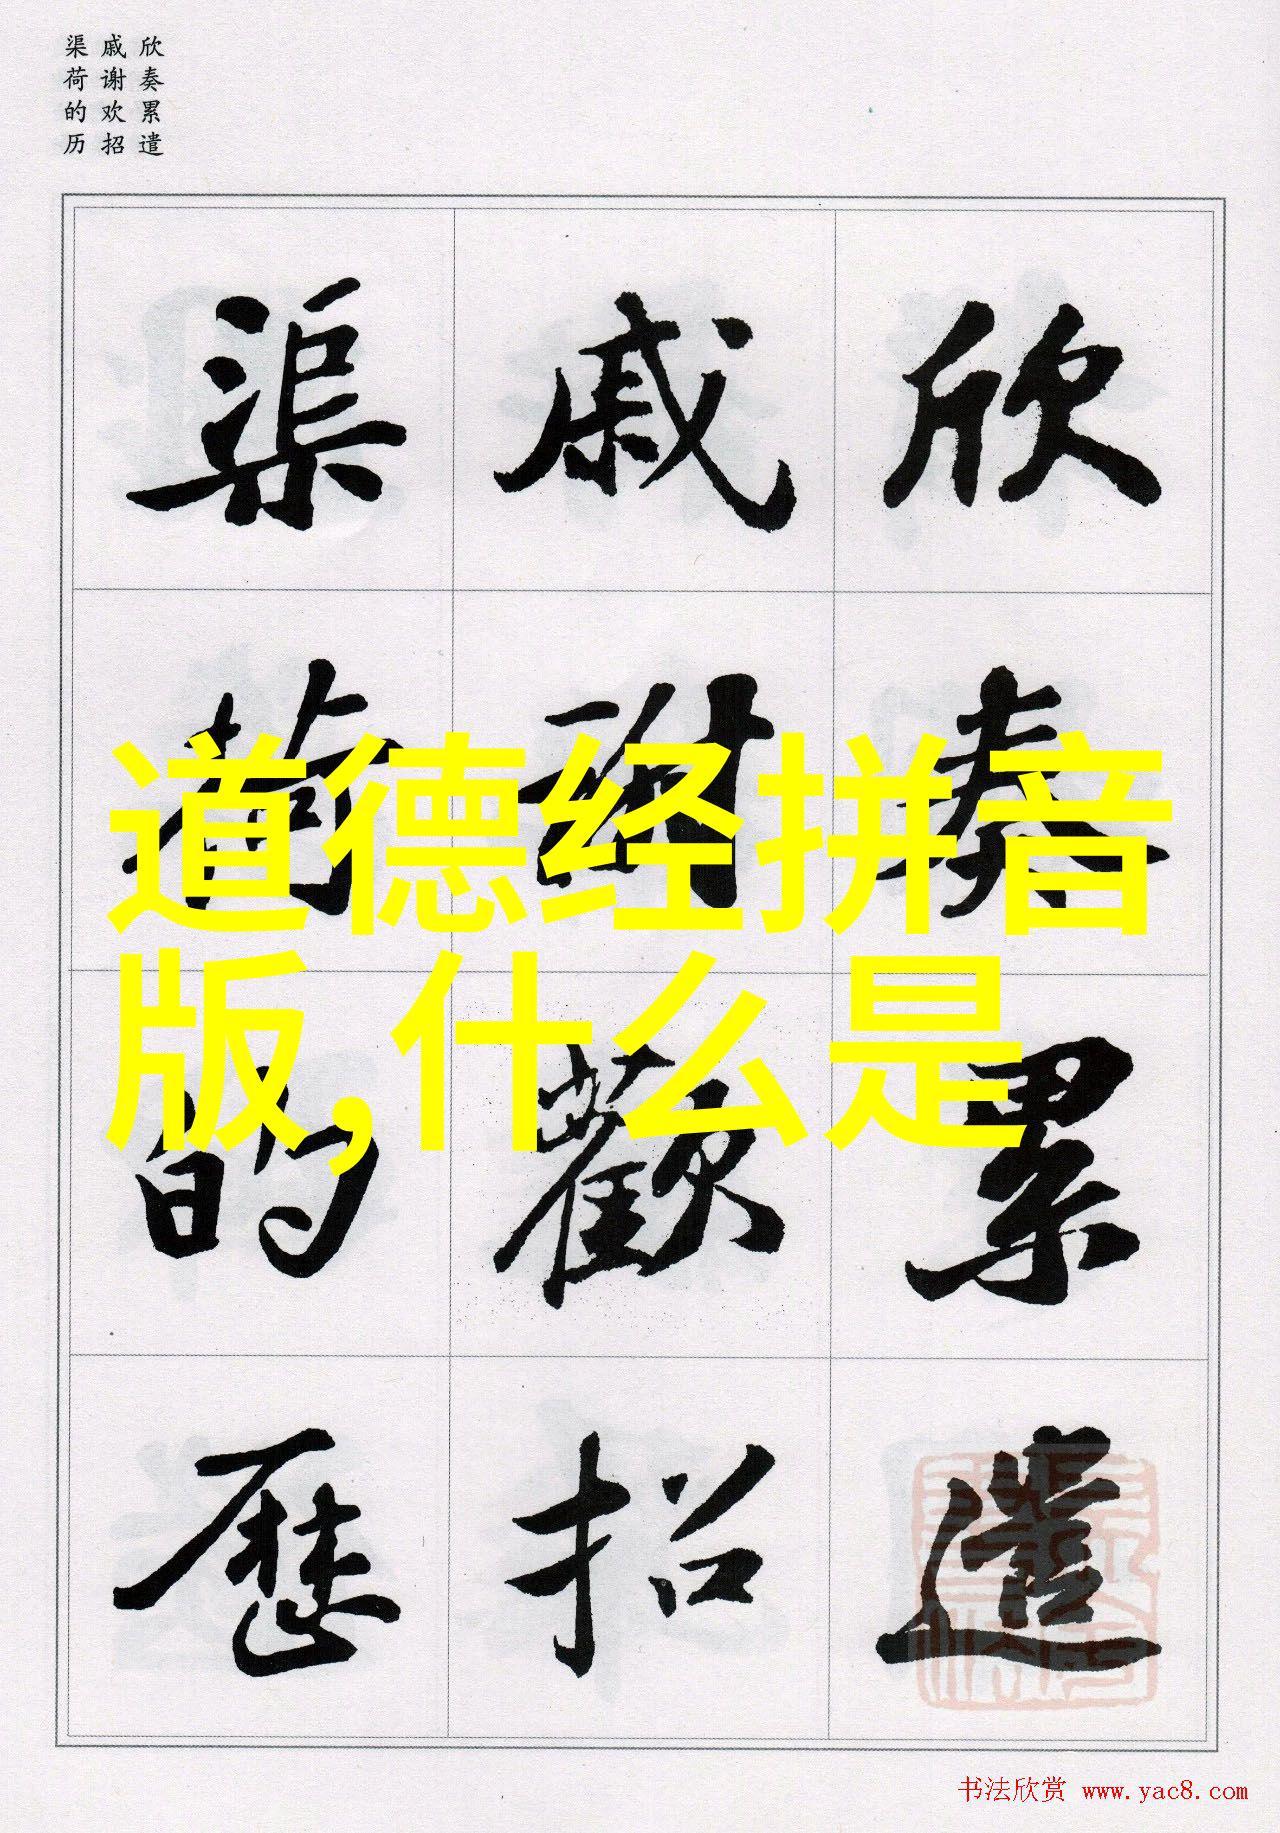 欣奏累遣
戚谢欢招
渠荷的历
欣奏累遣
戚謝歡招
渠荷的歷
道德经拼音
版,什么是
书法欣赏 www.yac8.com